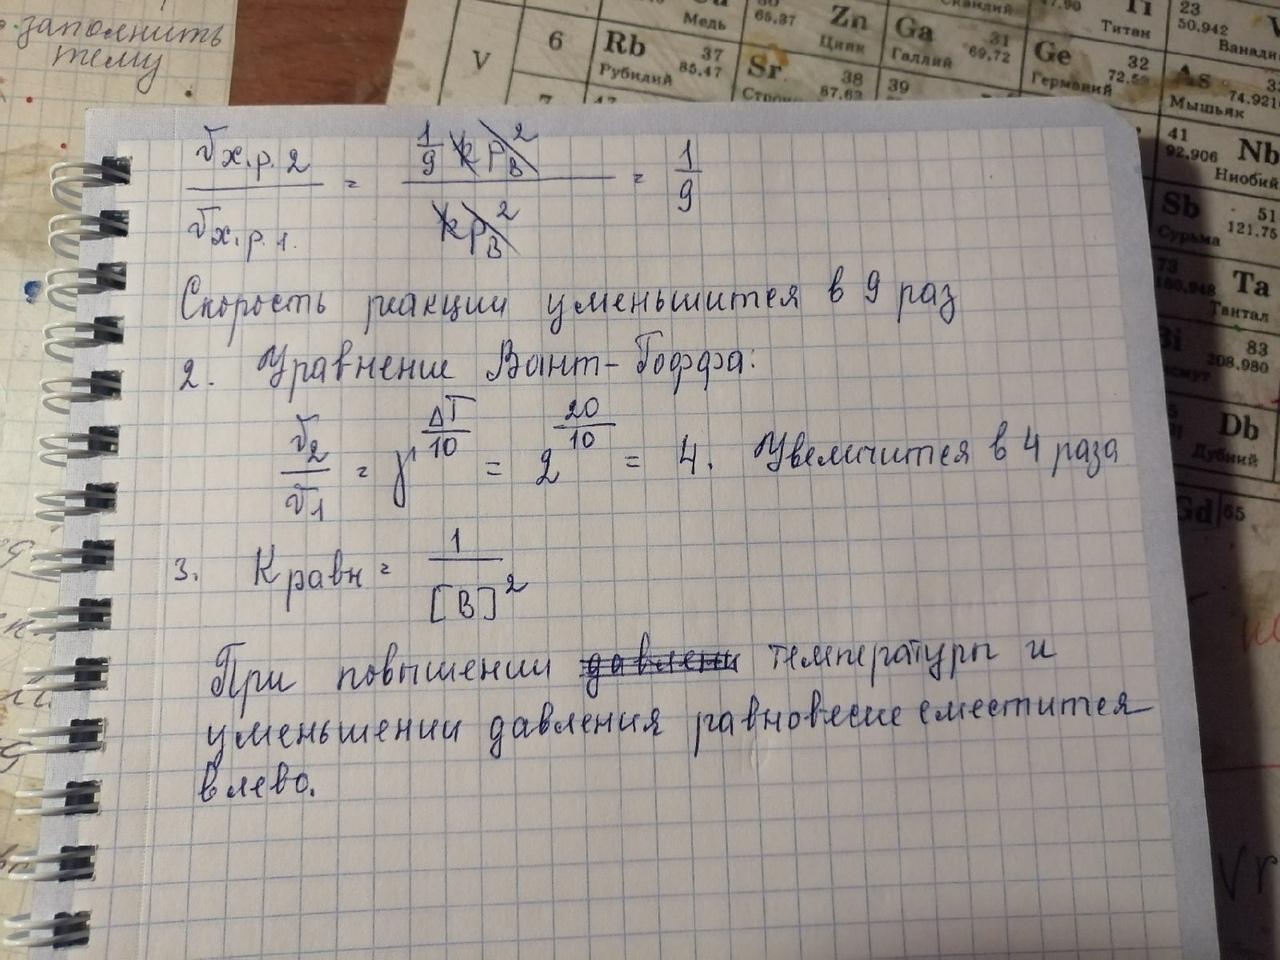 заполнить
тему
Медь
65,37 Zn
Цинк
Скандий
Ga 31
Галлий 69,72
47,90 Ti
Титан
Ge 32
72,59
Германий
23
50,942 V
Ванадий
As
74,921
Мышьяк
V 6 Rb 37
Рубидий 85,47
Sr 38
87,62
39
41
92,906 Nb
Ниобий
Sb 51
Сурьма 121,75
73
Ta
Тантал
Bi 83
208,980
Db
Дубний
Gd 65
Vх.р.2 / Vх.р.1. = 1/9 kp_B^2 / kp_B^2 = 1/9
Скорость реакции уменьшится в 9 раз
2. Уравнение Вант-Гоффа:
V2/V1 = γ^(ΔT/10) = 2^(20/10) = 4. Увеличится в 4 раза
3. Kравн = 1/[B]^2
При повышении давлени температуры и
уменьшении давления равновесие сместится
влево.